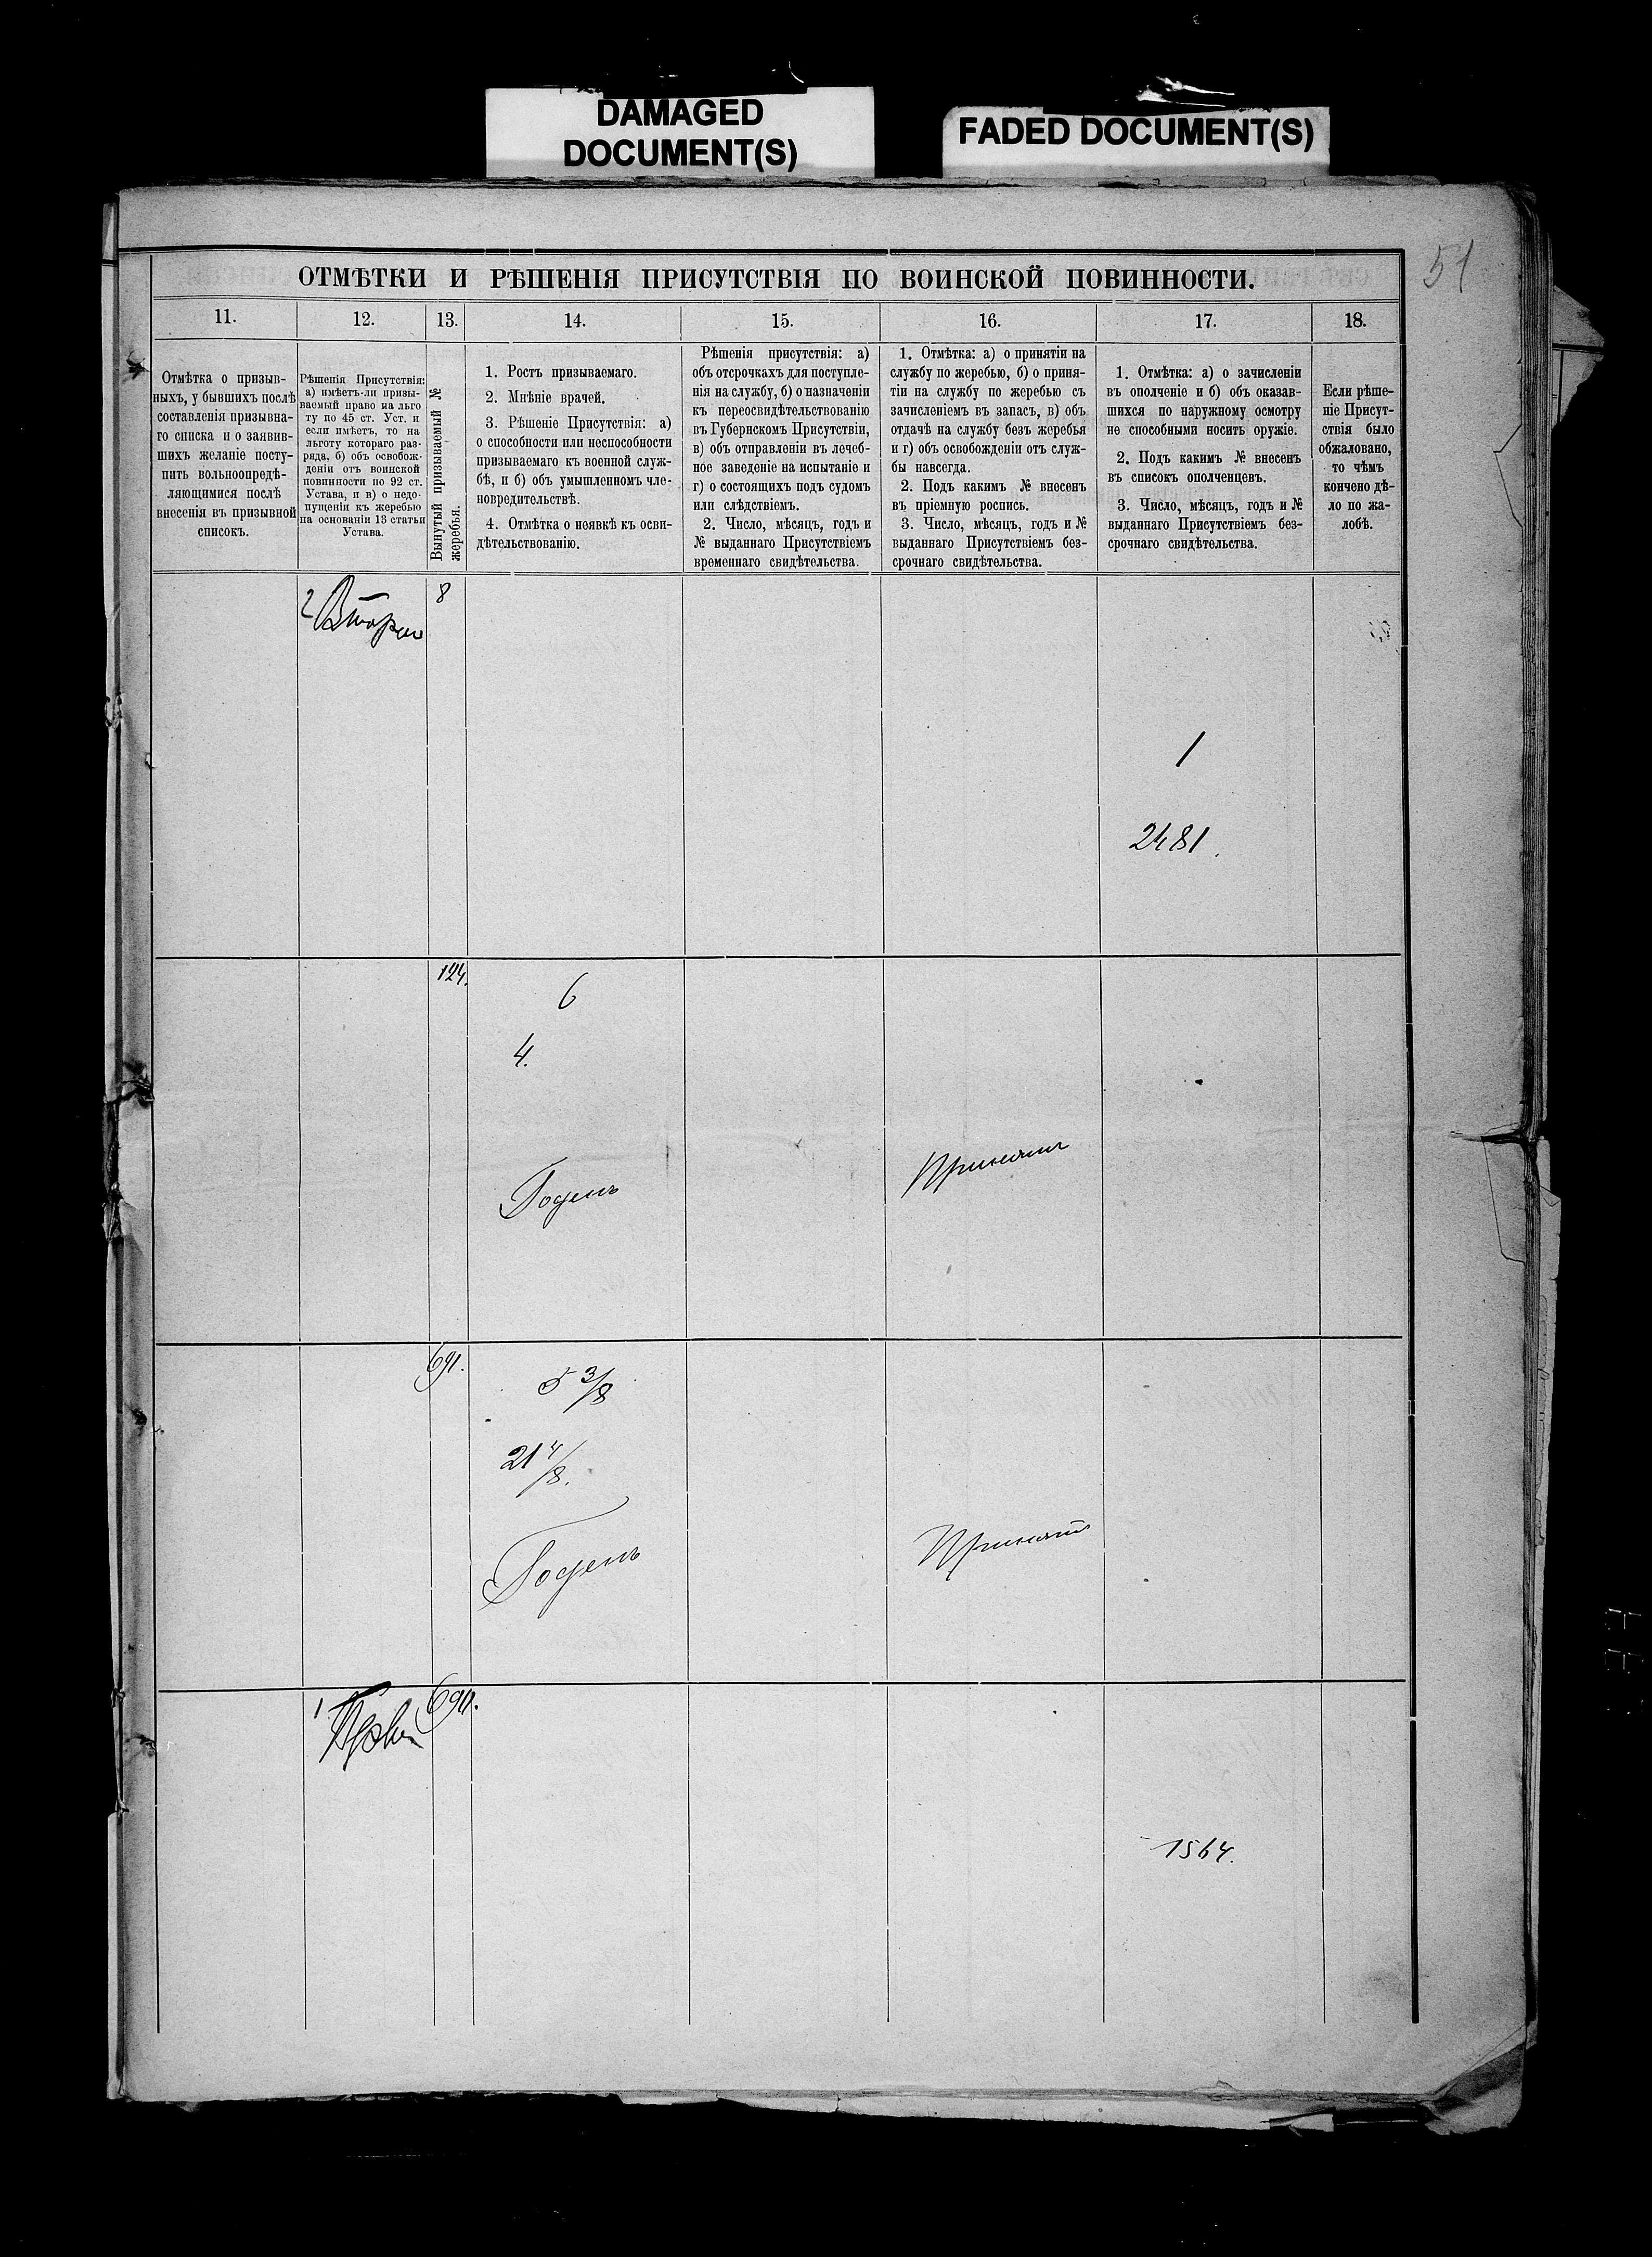 DAMAGED
DOCUMENT(S)
FADED DOCUMENT(S)
51
ОТМѢТКИ И РѢШЕНІЯ ПРИСУТСТВІЯ ПО ВОИНСКОЙ ПОВИННОСТИ.
11.
12.
13.
14.
15.
16.
17.
18.
Отмѣтка о призыв-
ныхъ, у бывшихъ послѣ
составленія призывна-
го списка и о заявив-
шихъ желаніе посту-
пить вольноопредѣ-
ляющимися послѣ
внесенія въ призывной
списокъ.
Рѣшенія Присутствія:
а) имѣетъ-ли призы-
ваемый право на льго
ту по 45 ст. Уст. и
если имѣетъ, то на
льготу котораго раз-
ряда, б) объ освобож-
деніи отъ воинской
повинности по 92 ст.
Устава, и в) о недо-
пущеніи къ жеребью
на основаніи 13 статьи
Устава.
Вынутый призываемый №
жеребья.
1. Ростъ призываемаго.
2. Мнѣніе врачей.
3. Рѣшеніе Присутствія: а)
о способности или неспособности
призываемаго къ военной служ-
бѣ, и б) объ умышленномъ чле-
новредительствѣ.
4. Отмѣтка о неявкѣ къ осви-
дѣтельствованію.
Рѣшенія присутствія: а)
объ отсрочкахъ для поступле-
нія на службу, б) о назначеніи
къ переосвидѣтельствованію
въ Губернскомъ Присутствіи,
в) объ отправленіи въ лечеб-
ное заведеніе на испытаніе и
г) о состоящихъ подъ судомъ
или слѣдствіемъ.
2. Число, мѣсяцъ, годъ и
№ выданнаго Присутствіемъ
временнаго свидѣтельства.
1. Отмѣтка: а) о принятіи на
службу по жеребью, б) о приня-
тіи на службу по жеребью съ
зачисленіемъ въ запасъ, в) объ
отдачѣ на службу безъ жеребья
и г) объ освобожденіи отъ служ-
бы навсегда.
2. Подъ какимъ № внесенъ
въ пріемную роспись.
3. Число, мѣсяцъ, годъ и №
выданнаго Присутствіемъ без-
срочнаго свидѣтельства.
1. Отмѣтка: а) о зачисленіи
въ ополченіе и б) объ оказав-
шихся по наружному осмотру
не способными носить оружіе.
2. Подъ какимъ № внесенъ
въ списокъ ополченцевъ.
3. Число, мѣсяцъ, годъ и №
выданнаго Присутствіемъ без-
срочнаго свидѣтельства.
Если рѣше-
ніе Присут-
ствія было
обжаловано,
то чѣмъ
кончено дѣ-
ло по жа-
лобѣ.
2
8
1
2481.
124.
6
4.
Годенъ
Принятъ
691.
5 3/8
21 4/8.
Годенъ
Принятъ
1
1564.